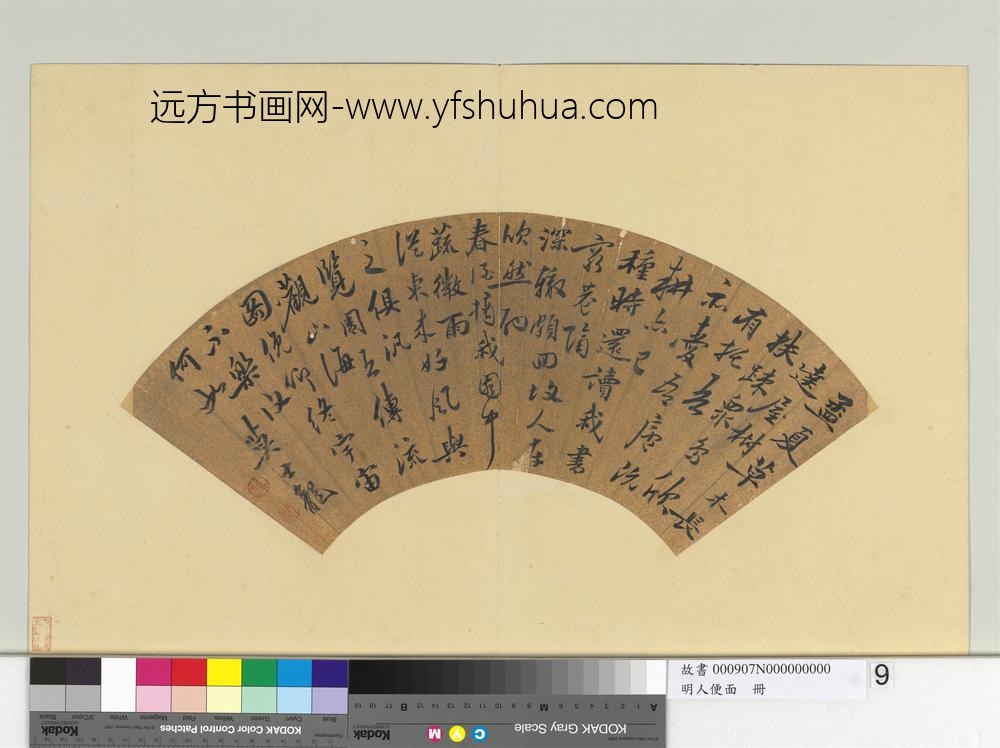 远方书画网-www.yfshuhua.com
孟夏草木長
遶屋樹
扶疎衆鳥欣
有托吾
亦愛吾廬既
耕亦已
種時還讀我書
窮巷隔
深轍頗回故人車
欣然酌
春酒摘我園中
蔬微雨
從東來好風與
之俱汎
覽周王傳流
觀山海
圖俛仰終宇宙
不樂復
何如
吳士龍
故書 000907N000000000
明人便面 冊
9
KODAK Color Control Patches
Kodak
Blue Cyan Green Yellow Red Magenta White 3/Color Black
KODAK Gray Scale
Kodak
C Y M
A 1 2 3 4 5 6 M 8 9 10 11 12 13 14 15 B 17 18 19